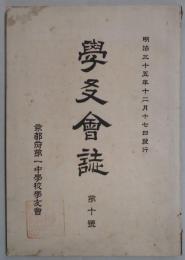 明治三十五年十二月十七日發行
學友會誌
第十號
京都府第一中學校學友會